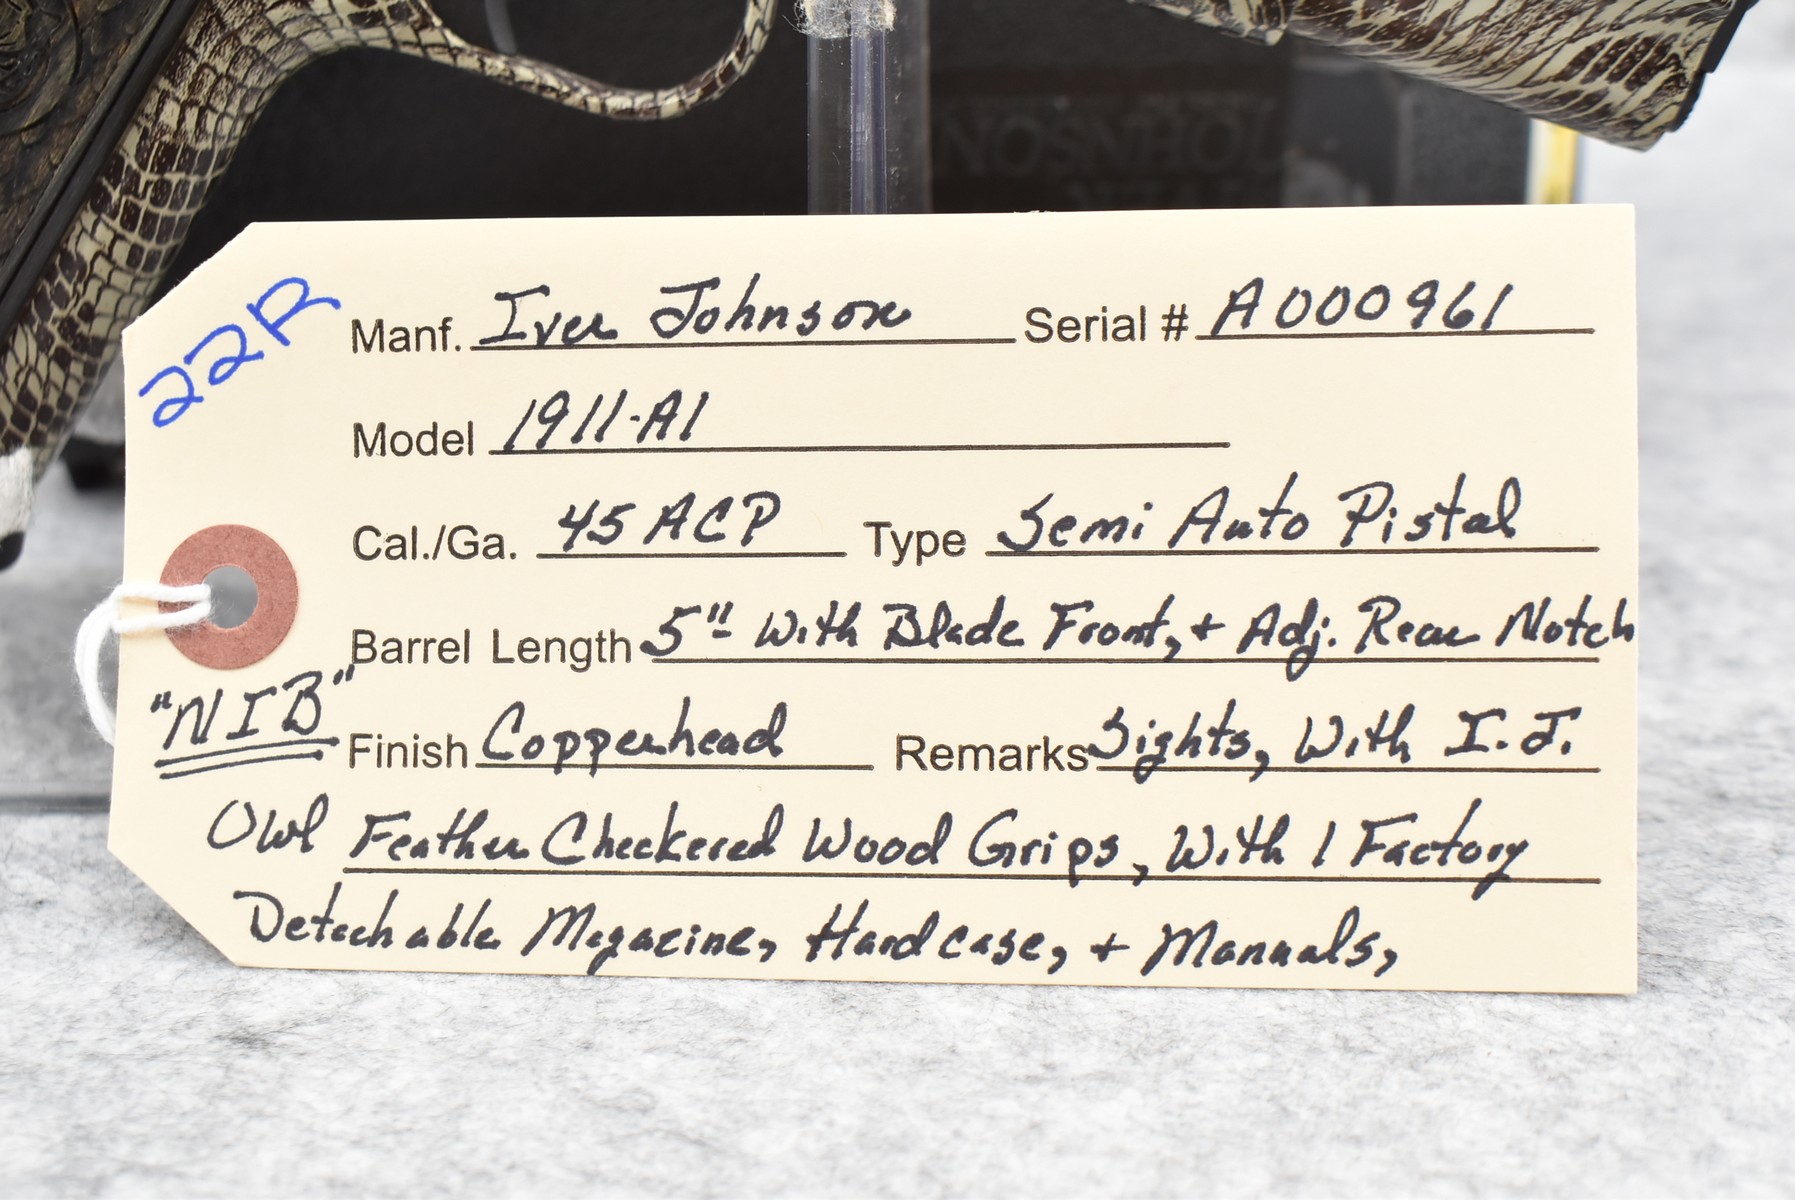 JOHNSON
22R
Manf. Iver Johnson Serial # A000961
Model 1911-A1
Cal./Ga. 45 ACP Type Semi Auto Pistal
Barrel Length 5" With Blade Front, + Adj. Rear Notch
"NIB" Finish Copperhead Remarks Sights, With I.J.
Owl Feather Checkered Wood Grips, With 1 Factory
Detachable Magazine, Hardcase, + Manuals,